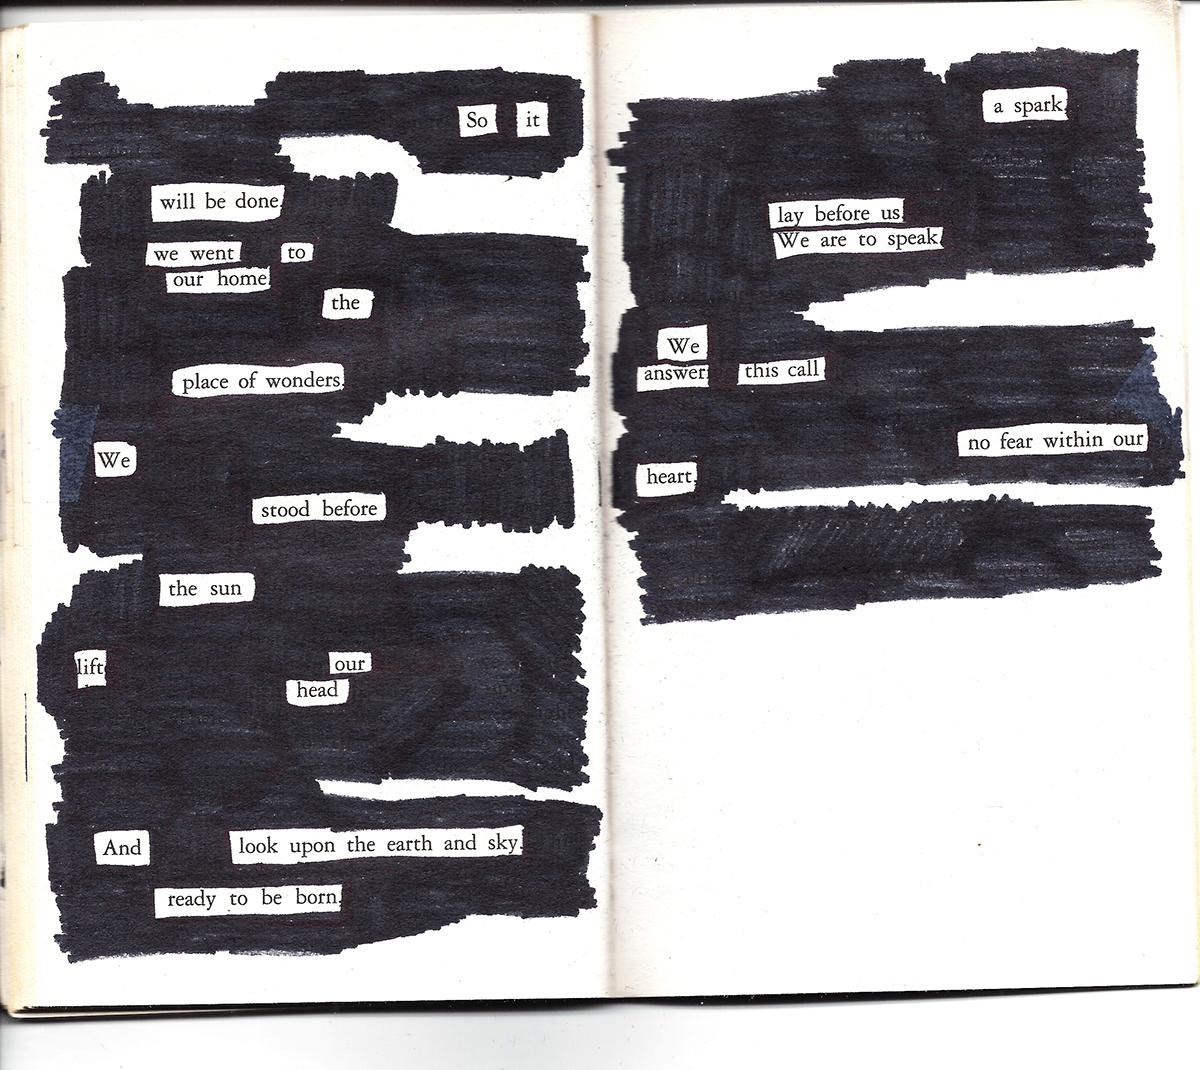 So it
will be done
we went to
our home
the
place of wonders.
We
stood before
the sun
lift
our
head
And look upon the earth and sky.
ready to be born.
a spark
lay before us.
We are to speak
We
answer this call
no fear within our
heart.